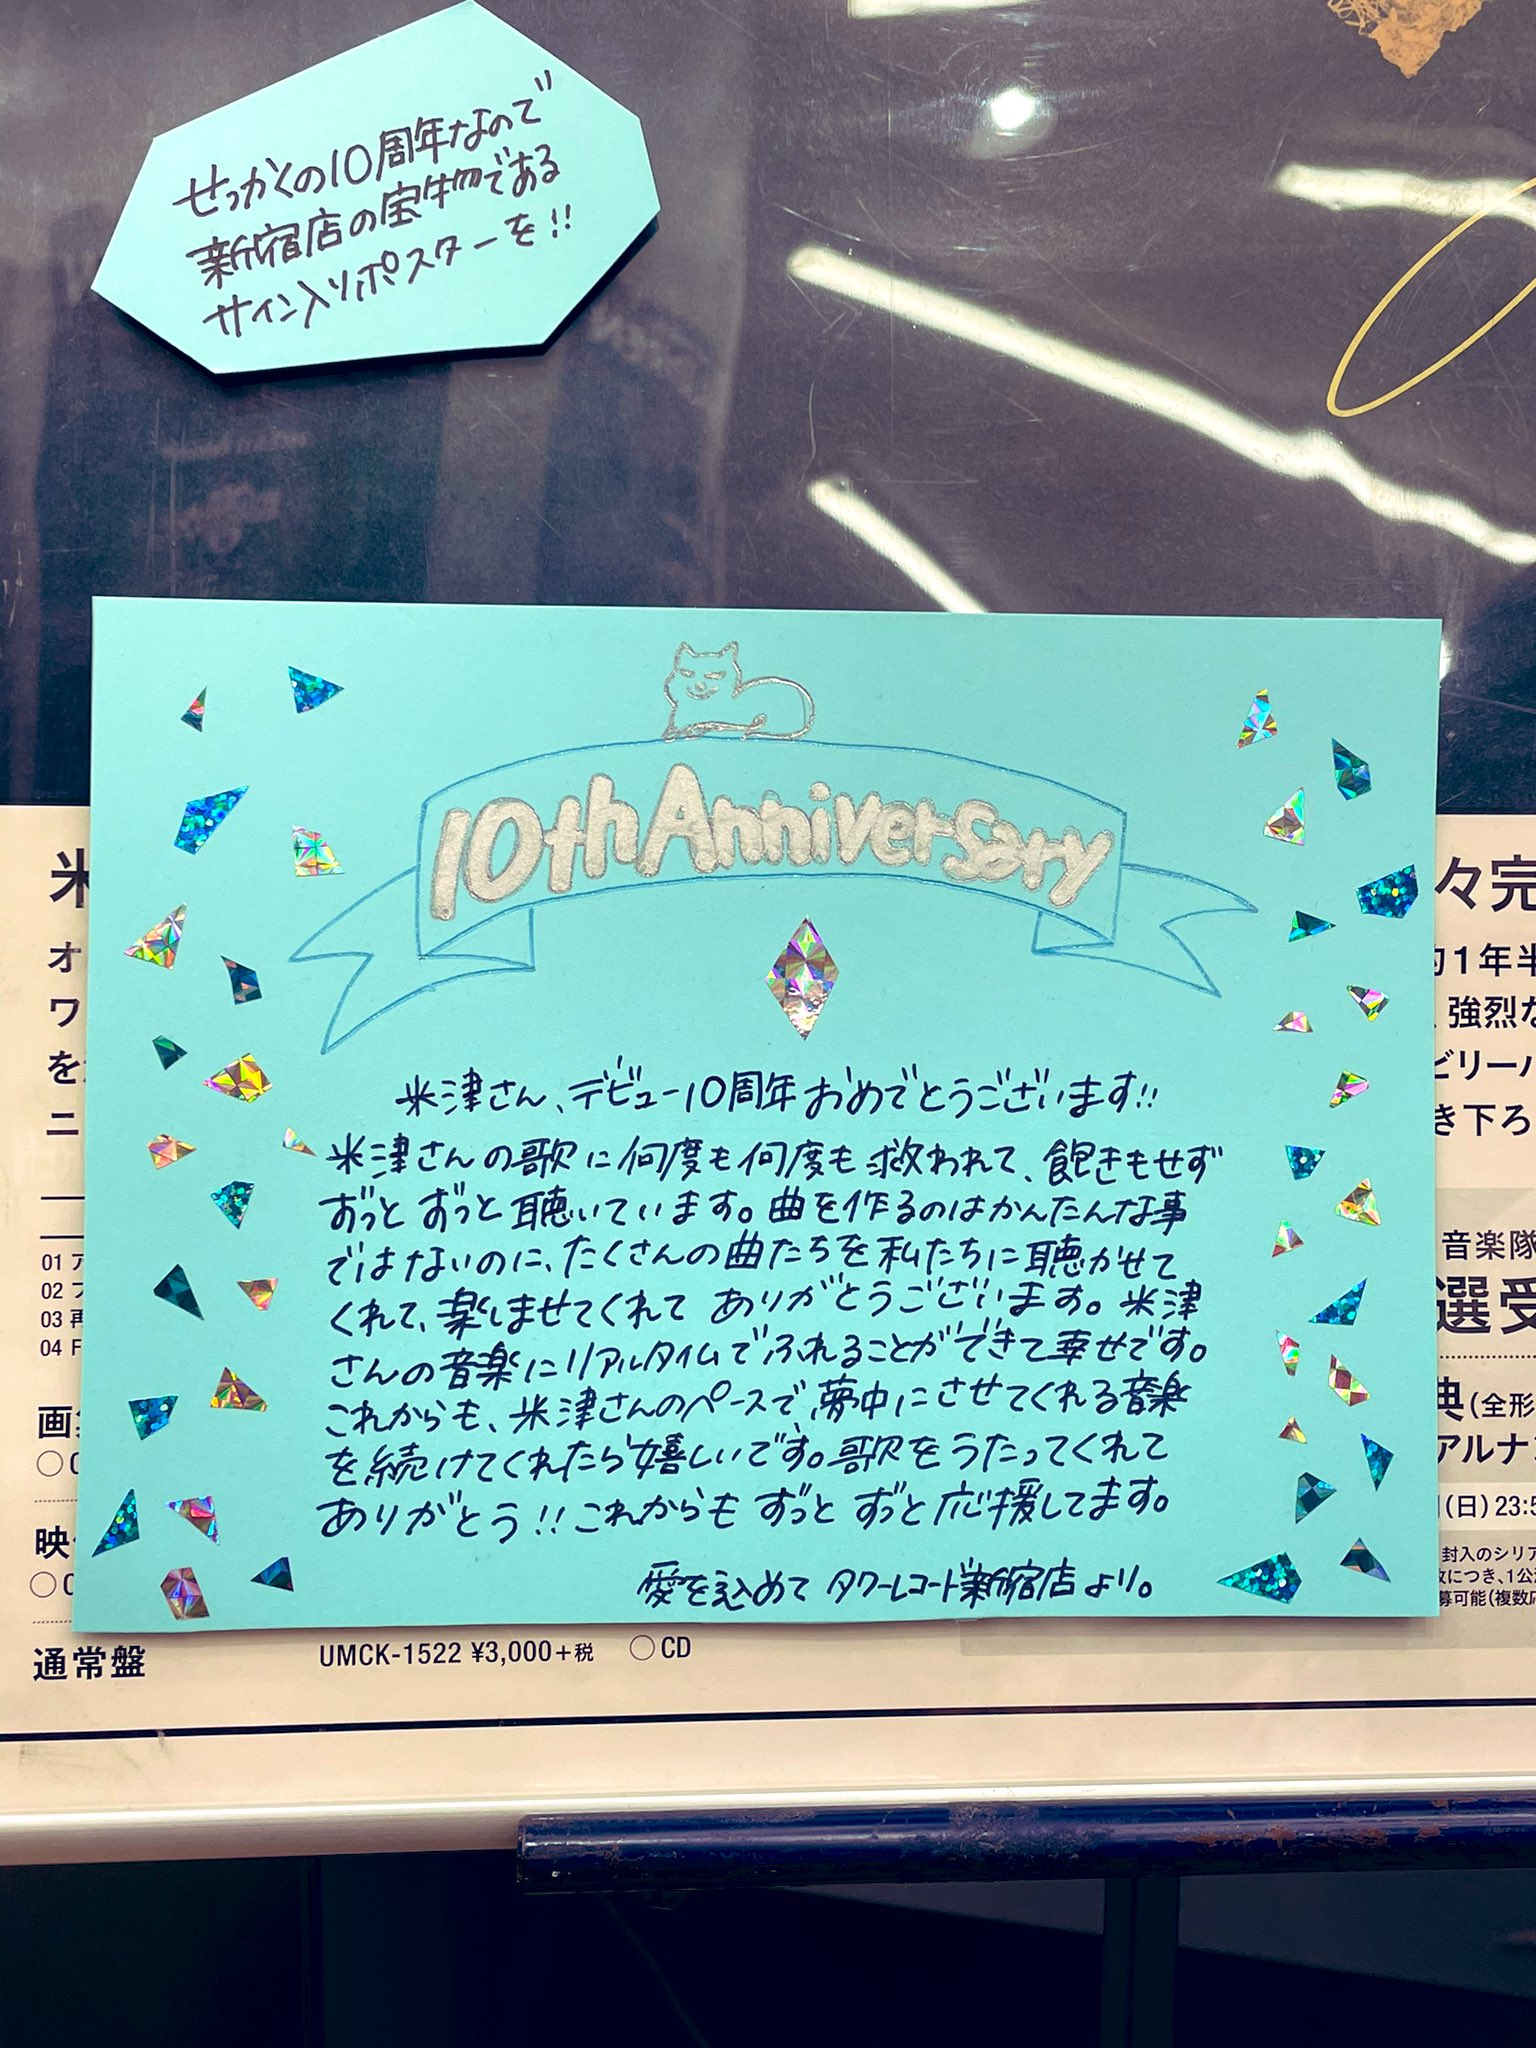 せっかくの10周年なので
新宿店の宝物である
サイン入りポスターを!!
10th Anniversary
米津さん、デビュー10周年おめでとうございます!!
米津さんの歌に何度も何度も救われて、飽きもせず
ずっとずっと聴いています。曲を作るのはかんたんな事
ではないのに、たくさんの曲たちを私たちに聴かせて
くれて、楽しませてくれてありがとうございます。米津
さんの音楽にリアルタイムでふれることができて幸せです。
これからも、米津さんのペースで、夢中にさせてくれる音楽
を続けてくれたら嬉しいです。歌をうたってくれて
ありがとう!!これからもずっとずっと応援してます。
愛を込めてタワーレコード新宿店より。
米
々完
オ
約1年半
ワ
強烈な
を
ビリーバ
ニ
き下ろ
音楽隊
選受
01 ア
02 フ
03 再
04 F
画集
典(全形
アルナ
(日)23:5
映像
封入のシリア
につき、1公
募可能(複数応
通常盤 UMCK-1522 ¥3,000+税 ○CD